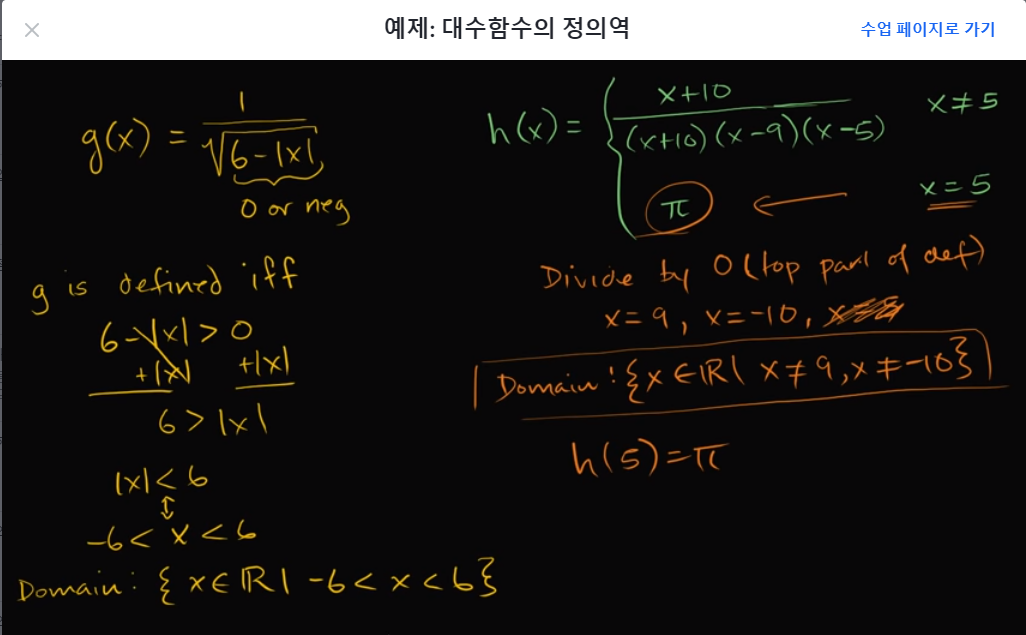 예제: 대수함수의 정의역
수업 페이지로 가기
g(x) = 1/√(6-|x|)
0 or neg
g is defined iff
6-|x| > 0
+|x| +|x|
6 > |x|
|x| < 6
↕
-6 < x < 6
Domain: {x∈ℝ| -6 < x < 6}
h(x) = { (x+10)/((x+10)(x-9)(x-5)) x≠5
π ← x=5
Divide by 0 (top part of def)
x=9, x=-10,
Domain: {x∈ℝ| x≠9, x≠-10}
h(5)=π